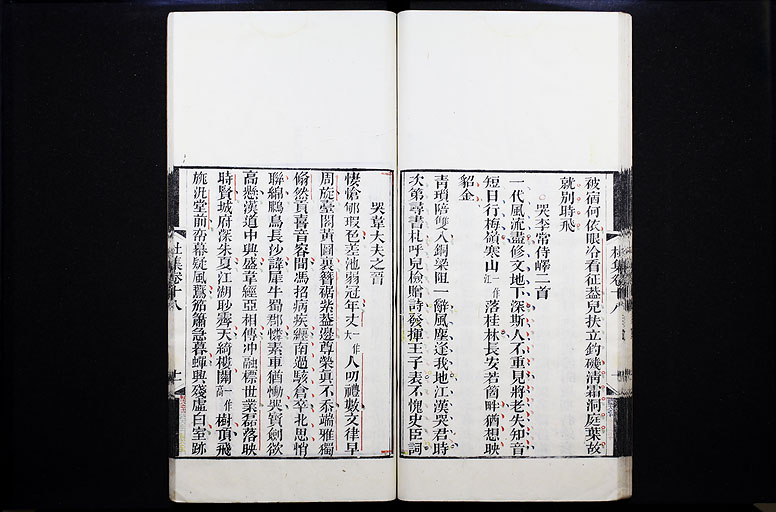 被褐何依眼冷看征蓋兒扶立釣磯清霜洞庭葉故
就別時飛
哭李常侍嶧二首
一代風流盡修文地下深斯人不重見將老失知音
短日行梅嶺寒山一作江落桂林長安若箇畔猶想映
貂金
青瑣陪雙入銅梁阻一辭風塵逢我地江漢哭君時
次第尋書札呼兒檢贈詩發揮王子表不愧史臣詞
杜集卷十八
哭韋大夫之晉
悽愴郇瑕色差池弱冠年丈一作大人叨禮數文律早
周旋臺閣黃圖裏簪裾紫蓋邊尊榮真不忝端雅獨
翛然貢喜音容間馮招病疾纏南過駭倉卒北思悄
聯緜鵩鳥長沙諱犀牛蜀郡憐素車猶慟哭寶劍欲
高懸漢道中興盛韋經亞相傳冲融標世業磊落映
時賢城府深朱夏江湖眇霽天綺樓關一作高樹頂飛
旐汎堂前帟幕疑風鷰笳簫急暮蟬興殘虛白室跡
杜集卷十八
十一